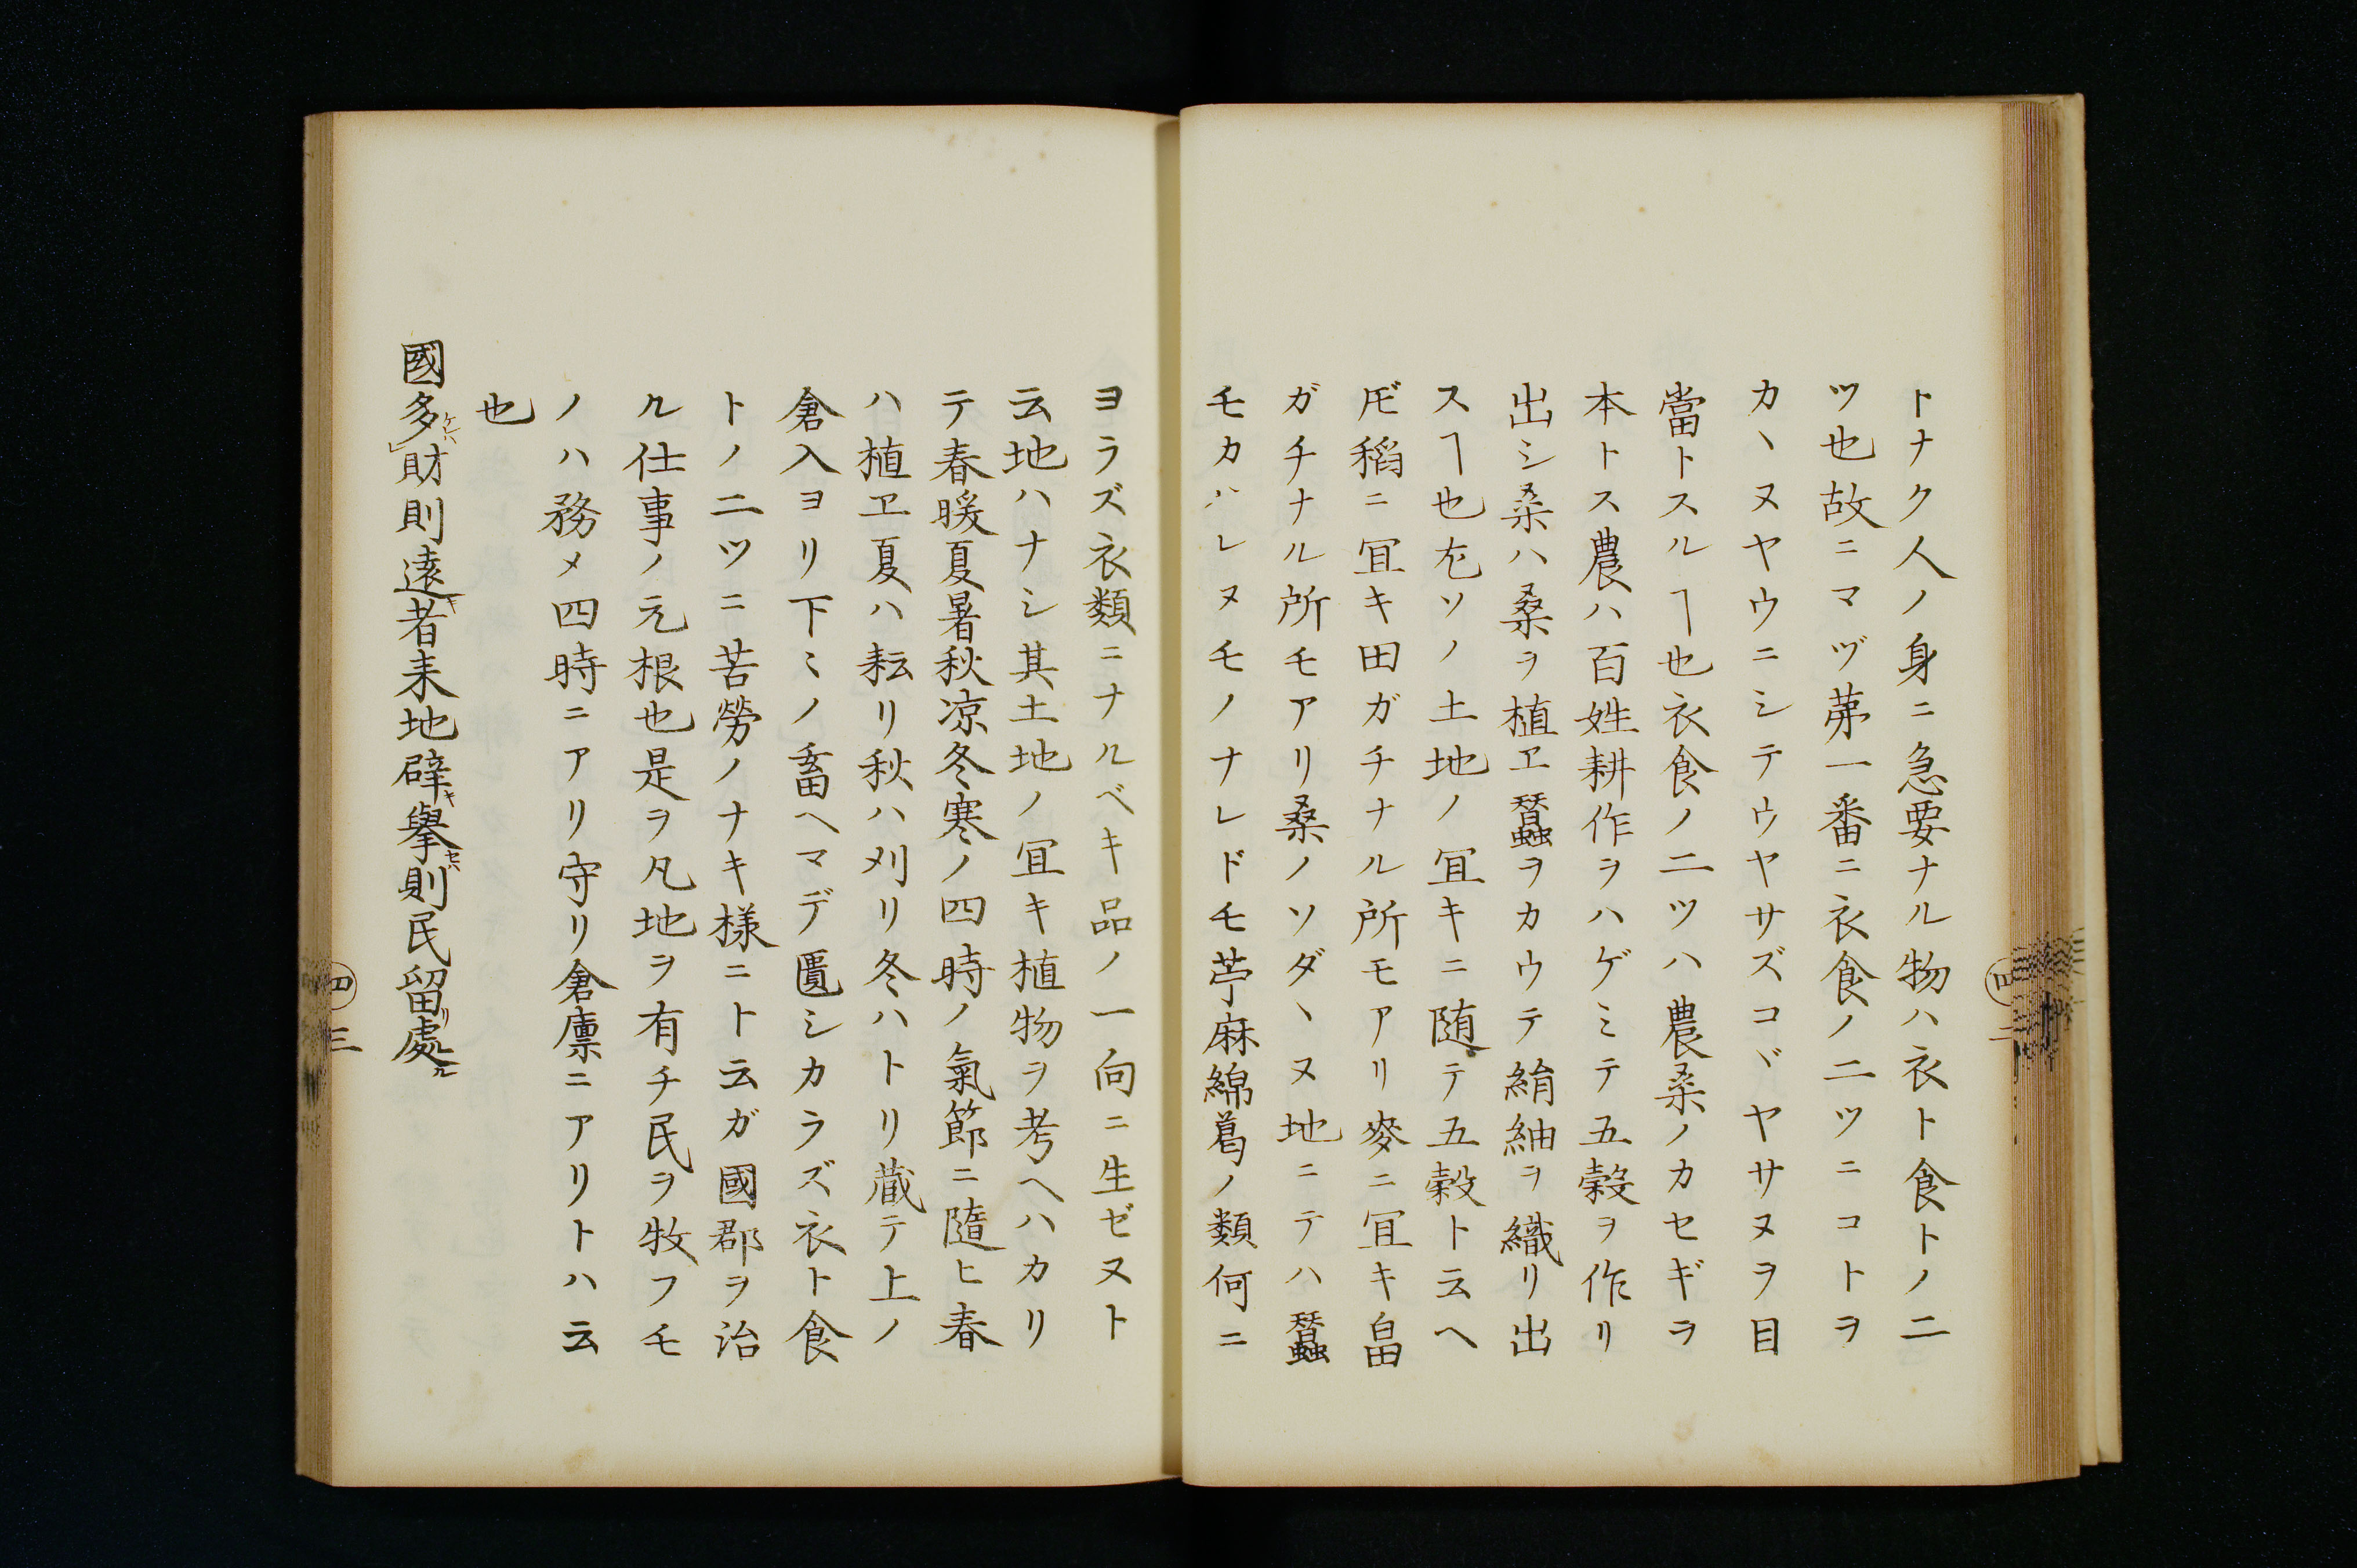 トナク人ノ身ニ急要ナル物ハ衣ト食トノ二
ツ也故ニマヅ苐一番ニ衣食ノ二ツニコトヲ
カヽヌヤウニシテウヤサズコヾヤサヌヲ目
當トスルヿ也衣食ノ二ツハ農桒ノカセギヲ
本トス農ハ百姓耕作ヲハゲミテ五穀ヲ作リ
出シ桒ハ桑ヲ植ヱ蠶ヲカウテ絹紬ヲ織リ出
スヿ也左ソノ土地ノ冝キニ随テ五穀ト云ヘ
𪜈稻ニ冝キ田ガチナル所モアリ麥ニ冝キ畠
ガチナル所モアリ桑ノソダヽヌ地ニテハ蠶
モカハレヌモノナレドモ苧麻綿葛ノ類何ニ
ヨラズ衣類ニナルベキ品ノ一向ニ生ゼヌト
云地ハナシ其土地ノ冝キ植物ヲ考ヘハカリ
テ春暖夏暑秋凉冬寒ノ四時ノ氣節ニ隨ヒ春
ハ植ヱ夏ハ耘リ秋ハ刈リ冬ハトリ蔵テ上ノ
倉入ヨリ下ミノ畜ヘマデ匱シカラズ衣ト食
トノ二ツニ苦勞ノナキ様ニト云ガ國郡ヲ治
ル仕事ノ元根也是ヲ凡地ヲ有チ民ヲ牧フモ
ノハ務メ四時ニアリ守リ倉廪ニアリトハ云
也
國多財則遠者来地辟擧則民留處
四 二
四 三